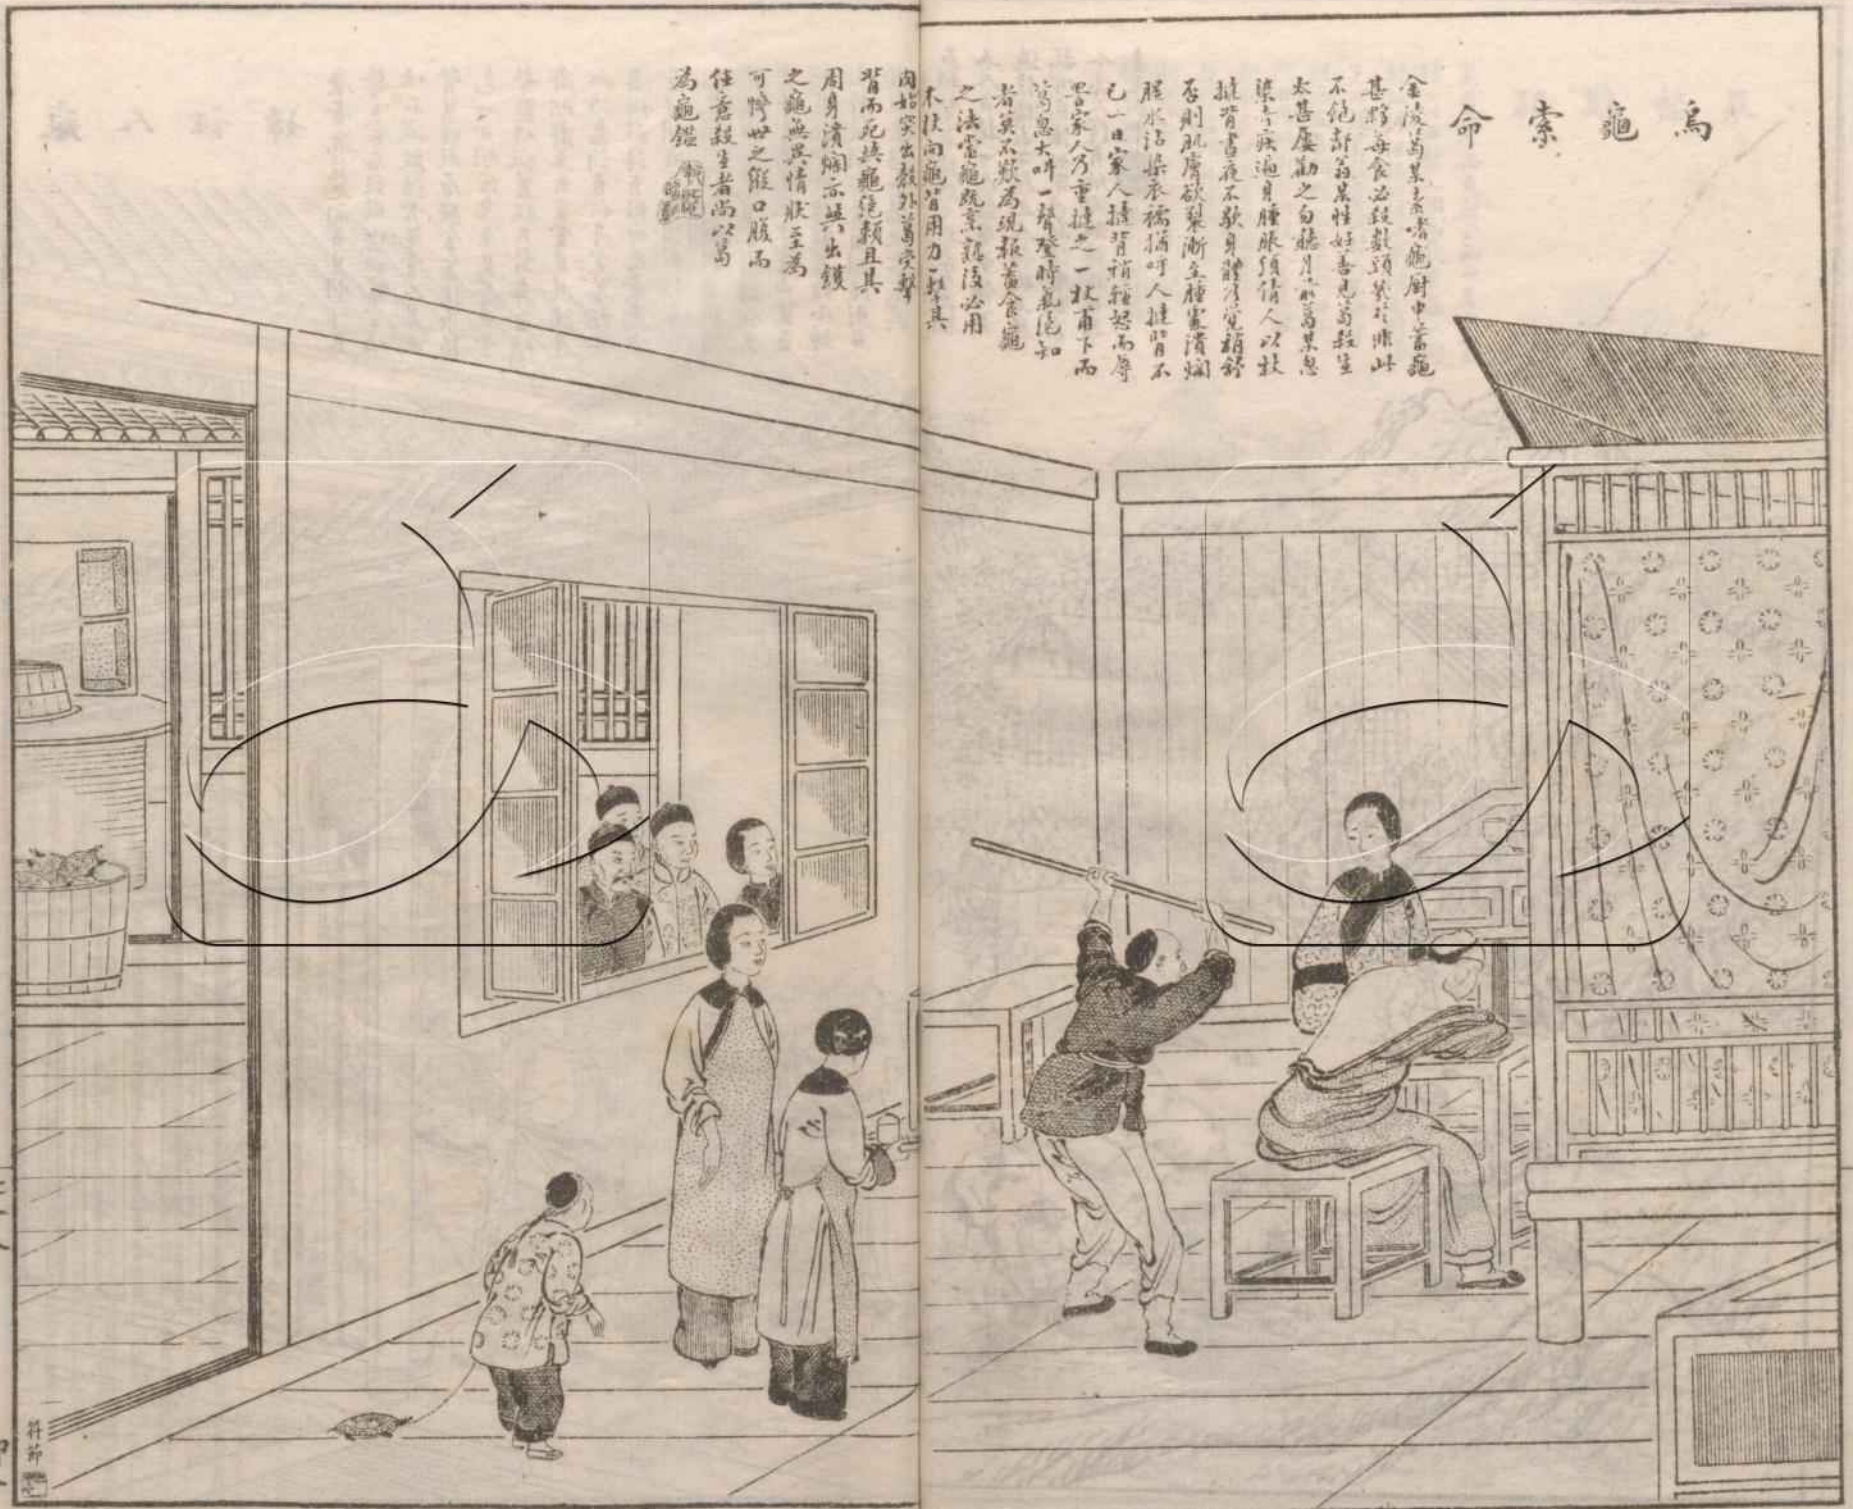 烏龜索命
金陵葛某素嗜龜廚中蓄龜
甚夥每食必殺數頭幾於非此
不飽鄰翁某性好善見葛殺生
太甚屢勸之勿聽月前葛某忽
染奇疾遍身腫脹須倩人以杖
撻背晝夜不歇身體方覺稍舒
否則肌膚欲裂漸至腫處潰爛
膿水沾染衣褥猶呼人撻背不
已一日家人撻背稍輕怒而辱
詈家人乃重撻之一杖甫下而
葛忽大叫一聲登時氣絕知
者莫不歎為現報蓋食龜
之法當龜既烹熟後必用
木杖向龜背用力一擊其
肉始突出殼外葛受擊
背而死與龜絕類且其
周身潰爛亦與出鑊
之龜無異情狀至為
可慘世之縱口腹而
任意殺生者尚以葛
為龜鑑
符節